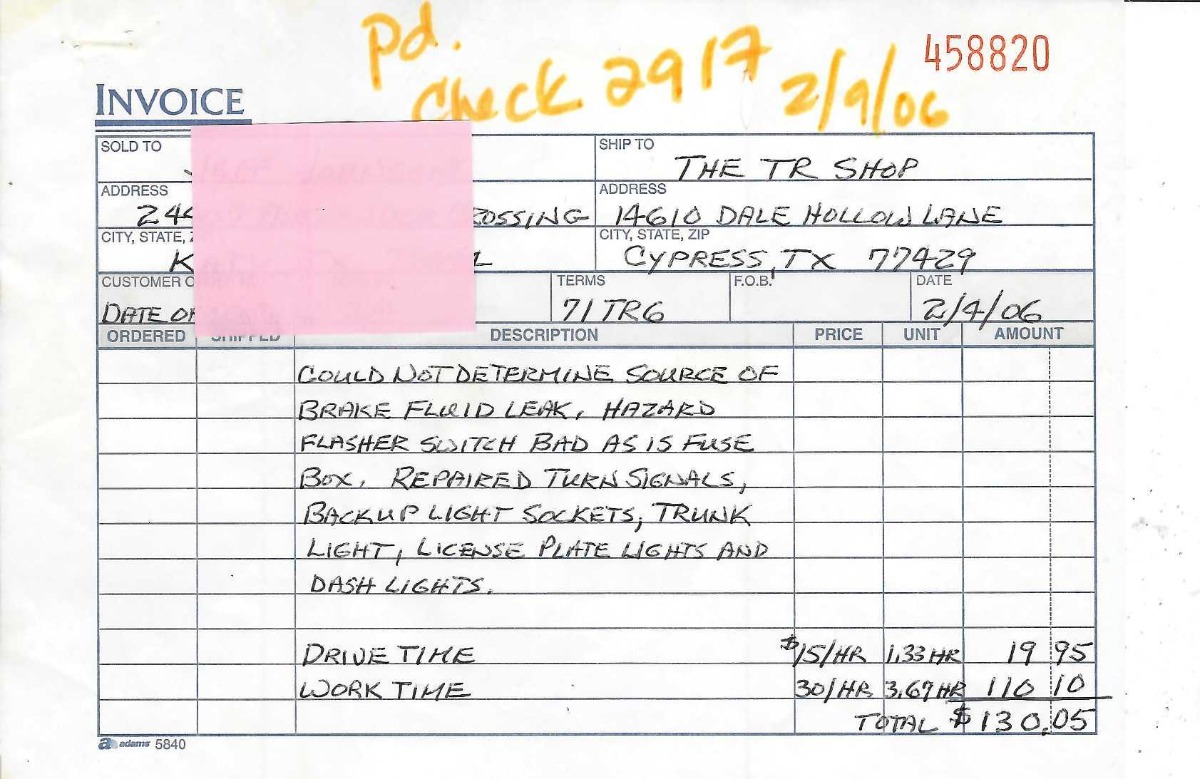 Pd.
Check 2917 2/9/06
458820
INVOICE
SOLD TO
SHIP TO
THE TR SHOP
ADDRESS
ADDRESS
244 OSSING
14610 DALE HOLLOW LANE
CITY, STATE,
CITY, STATE, ZIP
K L
CYPRESS, TX 77429
CUSTOMER O
TERMS
F.O.B.
DATE
DATE OF
71 TR6
2/4/06
ORDERED SHIPPED DESCRIPTION PRICE UNIT AMOUNT
COULD NOT DETERMINE SOURCE OF
BRAKE FLUID LEAK, HAZARD
FLASHER SWITCH BAD AS IS FUSE
BOX. REPAIRED TURN SIGNALS,
BACKUP LIGHT SOCKETS, TRUNK
LIGHT, LICENSE PLATE LIGHTS AND
DASH LIGHTS.
DRIVE TIME $15/HR 1.33 HR 19 95
WORK TIME 30/HR 3.67 HR 110 10
TOTAL $130.05
a adams 5840